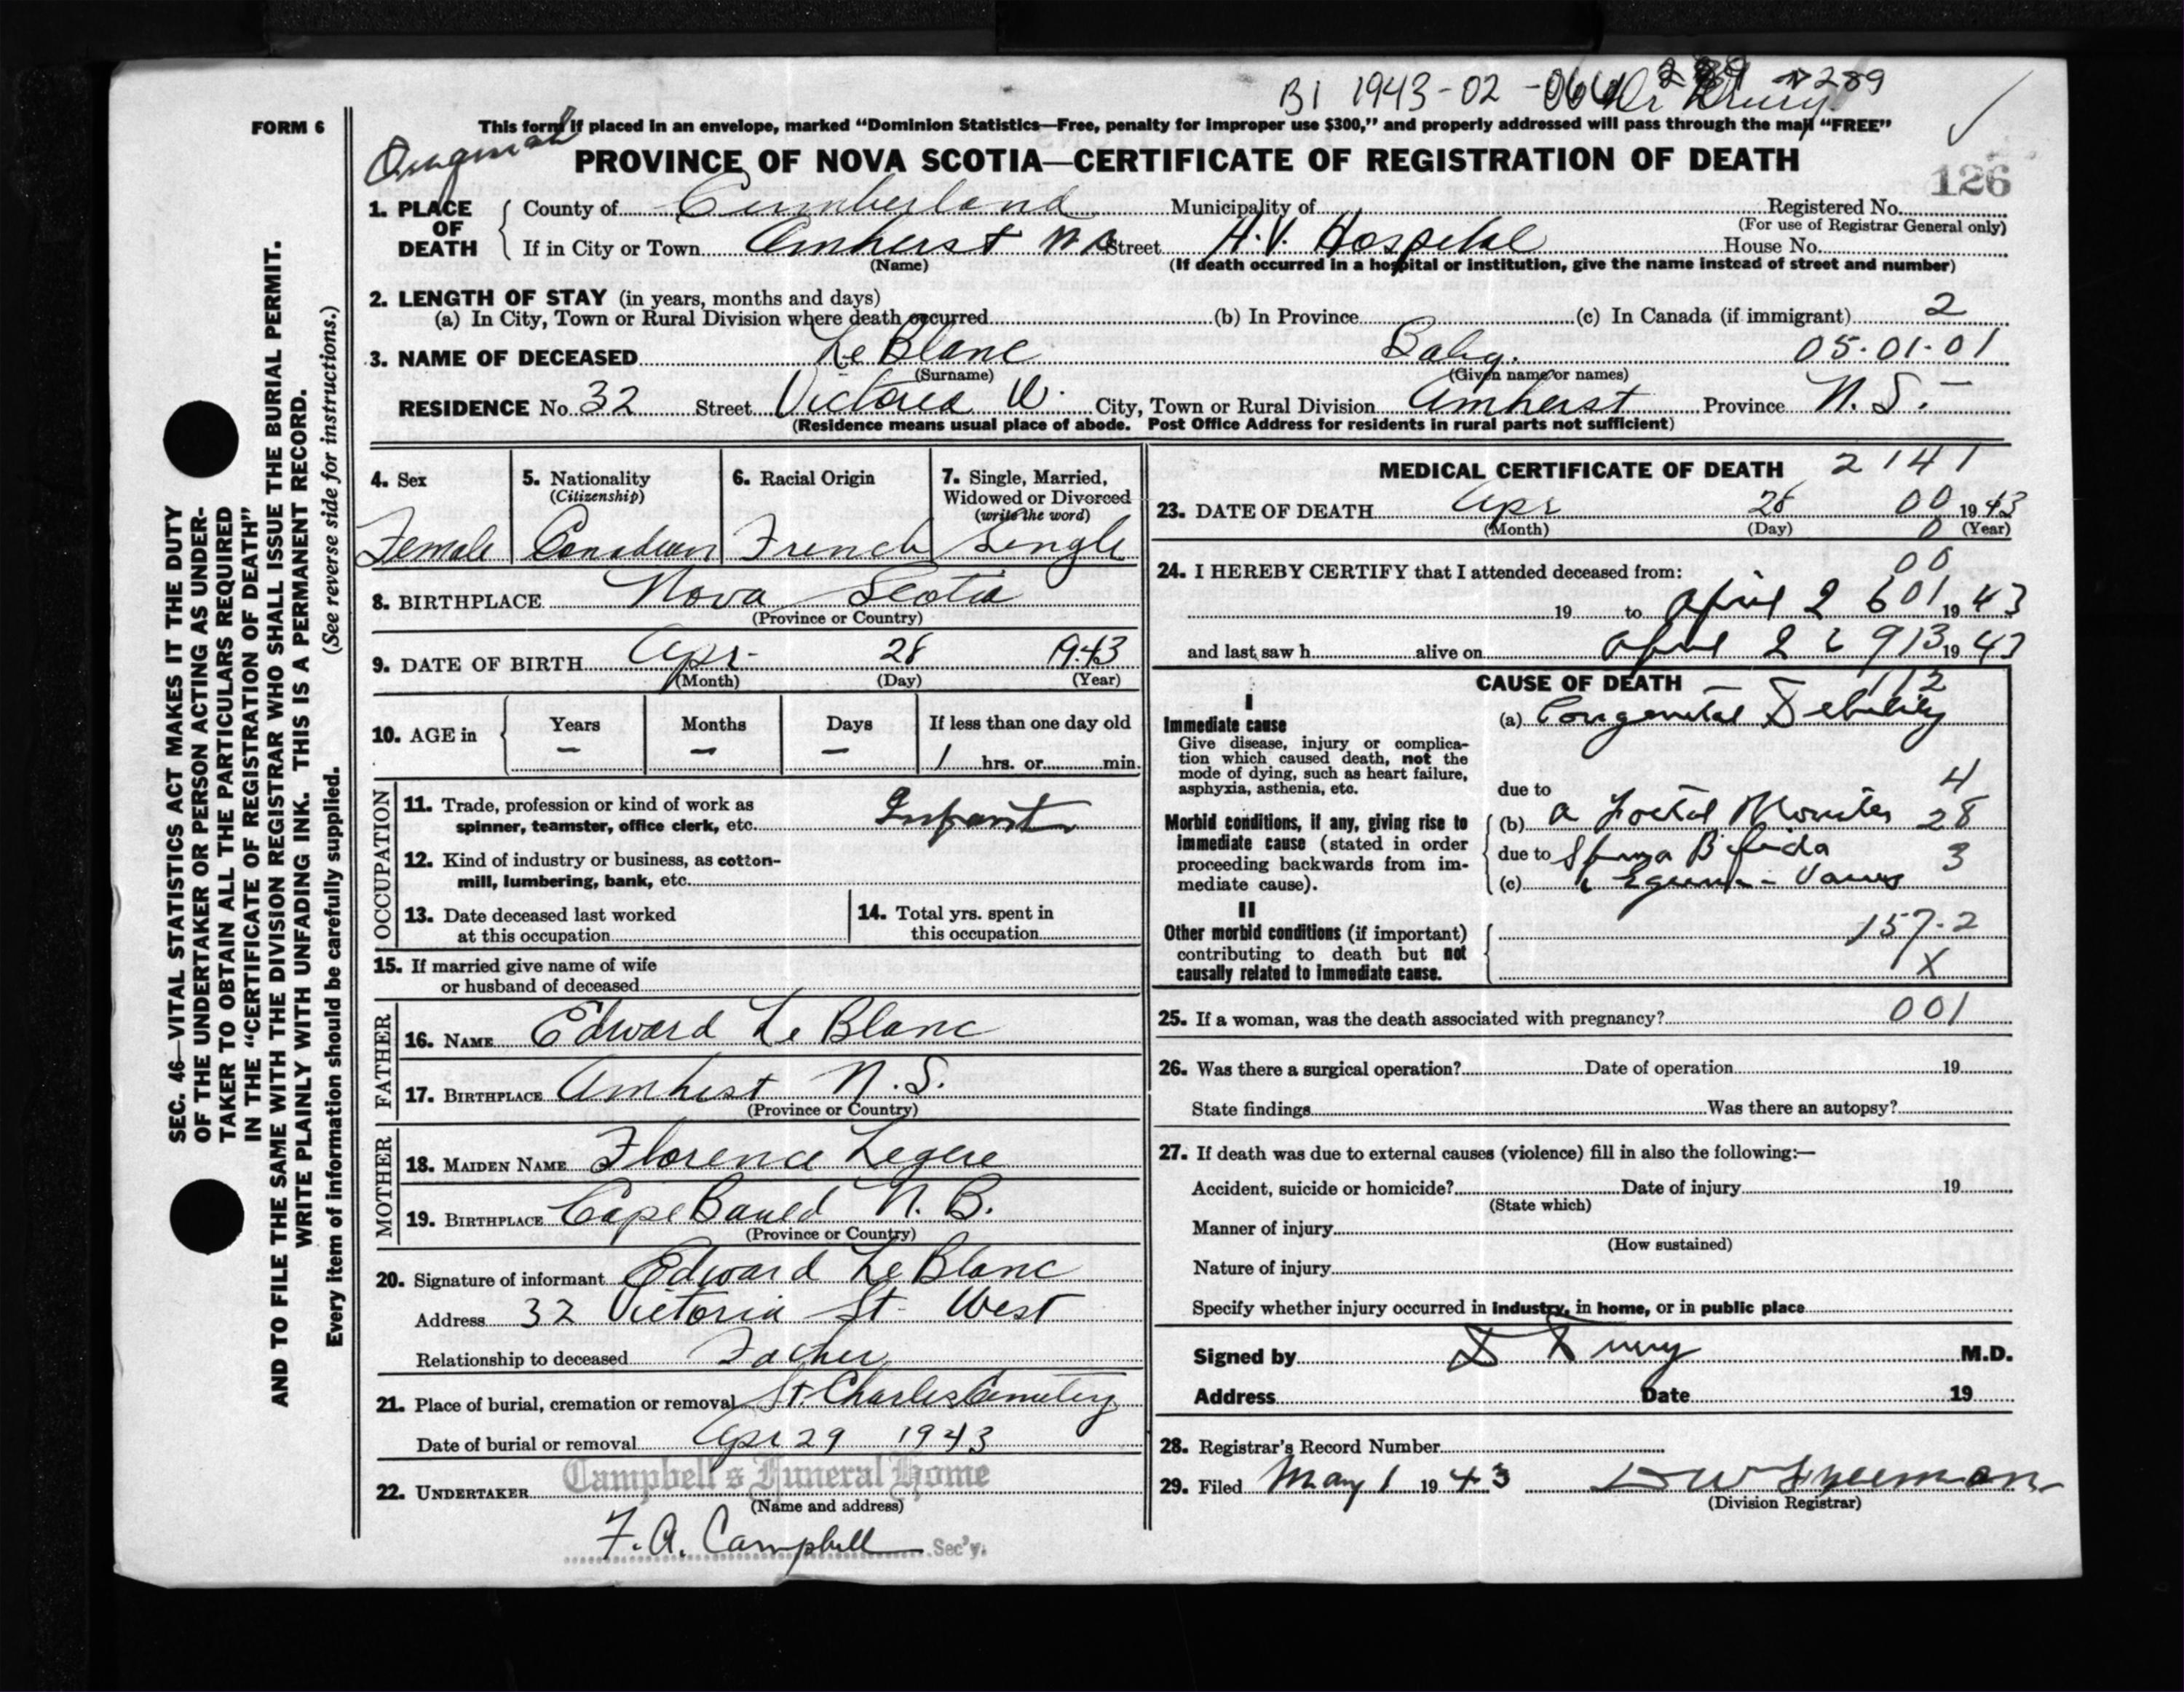 BI 1943-02-
289
Dr Drury
FORM 6
This form if placed in an envelope, marked “Dominion Statistics—Free, penalty for improper use $300,” and properly addressed will pass through the mail “FREE”
Original
PROVINCE OF NOVA SCOTIA—CERTIFICATE OF REGISTRATION OF DEATH
126
1. PLACE OF DEATH
County of Cumberland Municipality of Registered No.
(For use of Registrar General only)
If in City or Town Amherst N.S. Street H.V. Hospital House No.
(Name) (If death occurred in a hospital or institution, give the name instead of street and number)
2. LENGTH OF STAY (in years, months and days)
(a) In City, Town or Rural Division where death occurred (b) In Province (c) In Canada (if immigrant) 2
3. NAME OF DECEASED Le Blanc Baby. 05-01-01
(Surname) (Given name or names)
RESIDENCE No. 32 Street Victoria W. City, Town or Rural Division Amherst Province N.S.
(Residence means usual place of abode. Post Office Address for residents in rural parts not sufficient)
4. Sex
Female
5. Nationality
(Citizenship)
Canadian
6. Racial Origin
French
7. Single, Married,
Widowed or Divorced
(write the word)
Single
8. BIRTHPLACE Nova Scotia
(Province or Country)
9. DATE OF BIRTH Apr- 28 1943
(Month) (Day) (Year)
10. AGE in
Years Months Days If less than one day old
— — — 1 hrs. or min.
OCCUPATION
11. Trade, profession or kind of work as
spinner, teamster, office clerk, etc. Infant
12. Kind of industry or business, as cotton-
mill, lumbering, bank, etc.
13. Date deceased last worked
at this occupation
14. Total yrs. spent in
this occupation
15. If married give name of wife
or husband of deceased
FATHER
16. NAME Edward Le Blanc
17. BIRTHPLACE Amherst N.S.
(Province or Country)
MOTHER
18. MAIDEN NAME Florence Legere
19. BIRTHPLACE Cape Bauld N.B.
(Province or Country)
20. Signature of informant Edward Le Blanc
Address 32 Victoria St- West
Relationship to deceased Father
21. Place of burial, cremation or removal St. Charles Cemetery
Date of burial or removal Apr 29 1943
Campbell's Funeral Home
22. UNDERTAKER
(Name and address)
F. A. Campbell Sec'y.
MEDICAL CERTIFICATE OF DEATH 2141
23. DATE OF DEATH Apr 28 00 1943
(Month) (Day) 0 (Year)
00
24. I HEREBY CERTIFY that I attended deceased from:
19 to April 2 601 1943
and last saw h alive on April 2 913 1943
CAUSE OF DEATH 112
I
Immediate cause
Give disease, injury or complica-
tion which caused death, not the
mode of dying, such as heart failure,
asphyxia, asthenia, etc.
(a) Congenital Debility
4
due to
Morbid conditions, if any, giving rise to
immediate cause (stated in order
proceeding backwards from im-
mediate cause).
(b) a Foetal Monster 28
due to Spina Bifida 3
(c) Varus
II
Other morbid conditions (if important)
contributing to death but not
causally related to immediate cause.
157-2
X
25. If a woman, was the death associated with pregnancy? 001
26. Was there a surgical operation? Date of operation 19
State findings Was there an autopsy?
27. If death was due to external causes (violence) fill in also the following:—
Accident, suicide or homicide? Date of injury 19
(State which)
Manner of injury
(How sustained)
Nature of injury
Specify whether injury occurred in industry, in home, or in public place
Signed by D Drury M.D.
Address Date 19
28. Registrar's Record Number
29. Filed May 1 1943 D W Freeman
(Division Registrar)
SEC. 46—VITAL STATISTICS ACT MAKES IT THE DUTY
OF THE UNDERTAKER OR PERSON ACTING AS UNDER-
TAKER TO OBTAIN ALL THE PARTICULARS REQUIRED
IN THE “CERTIFICATE OF REGISTRATION OF DEATH”
AND TO FILE THE SAME WITH THE DIVISION REGISTRAR WHO SHALL ISSUE THE BURIAL PERMIT.
WRITE PLAINLY WITH UNFADING INK. THIS IS A PERMANENT RECORD.
Every item of information should be carefully supplied. (See reverse side for instructions.)